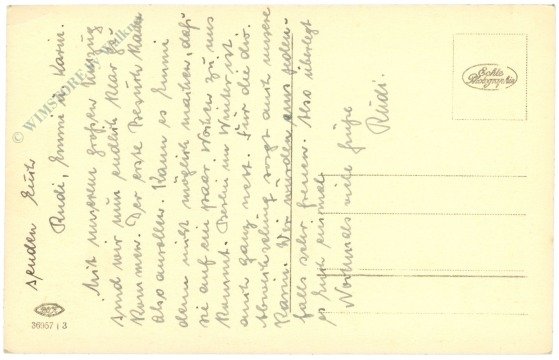 senden Euch
Rudi, Emmi u. Karin.
Mit unserem großen Umzug
sind wir nun endlich klar zu
kommen. Der erste Besuch kann
also anrollen. Kann es Emmi
denn nicht möglich machen, daß
sie auf ein paar Wochen zu uns
kommt. Berlin im Winter ist
auch ganz nett. Für die
Abwechslung sorgt auch unsere
Karin. Wir würden uns jeden-
falls sehr freuen. Also überlegt
es Euch einmal.
Nochmals viele Grüße
Rudi.
Echte
Photographie
36957 | 3
© WIMSTORE